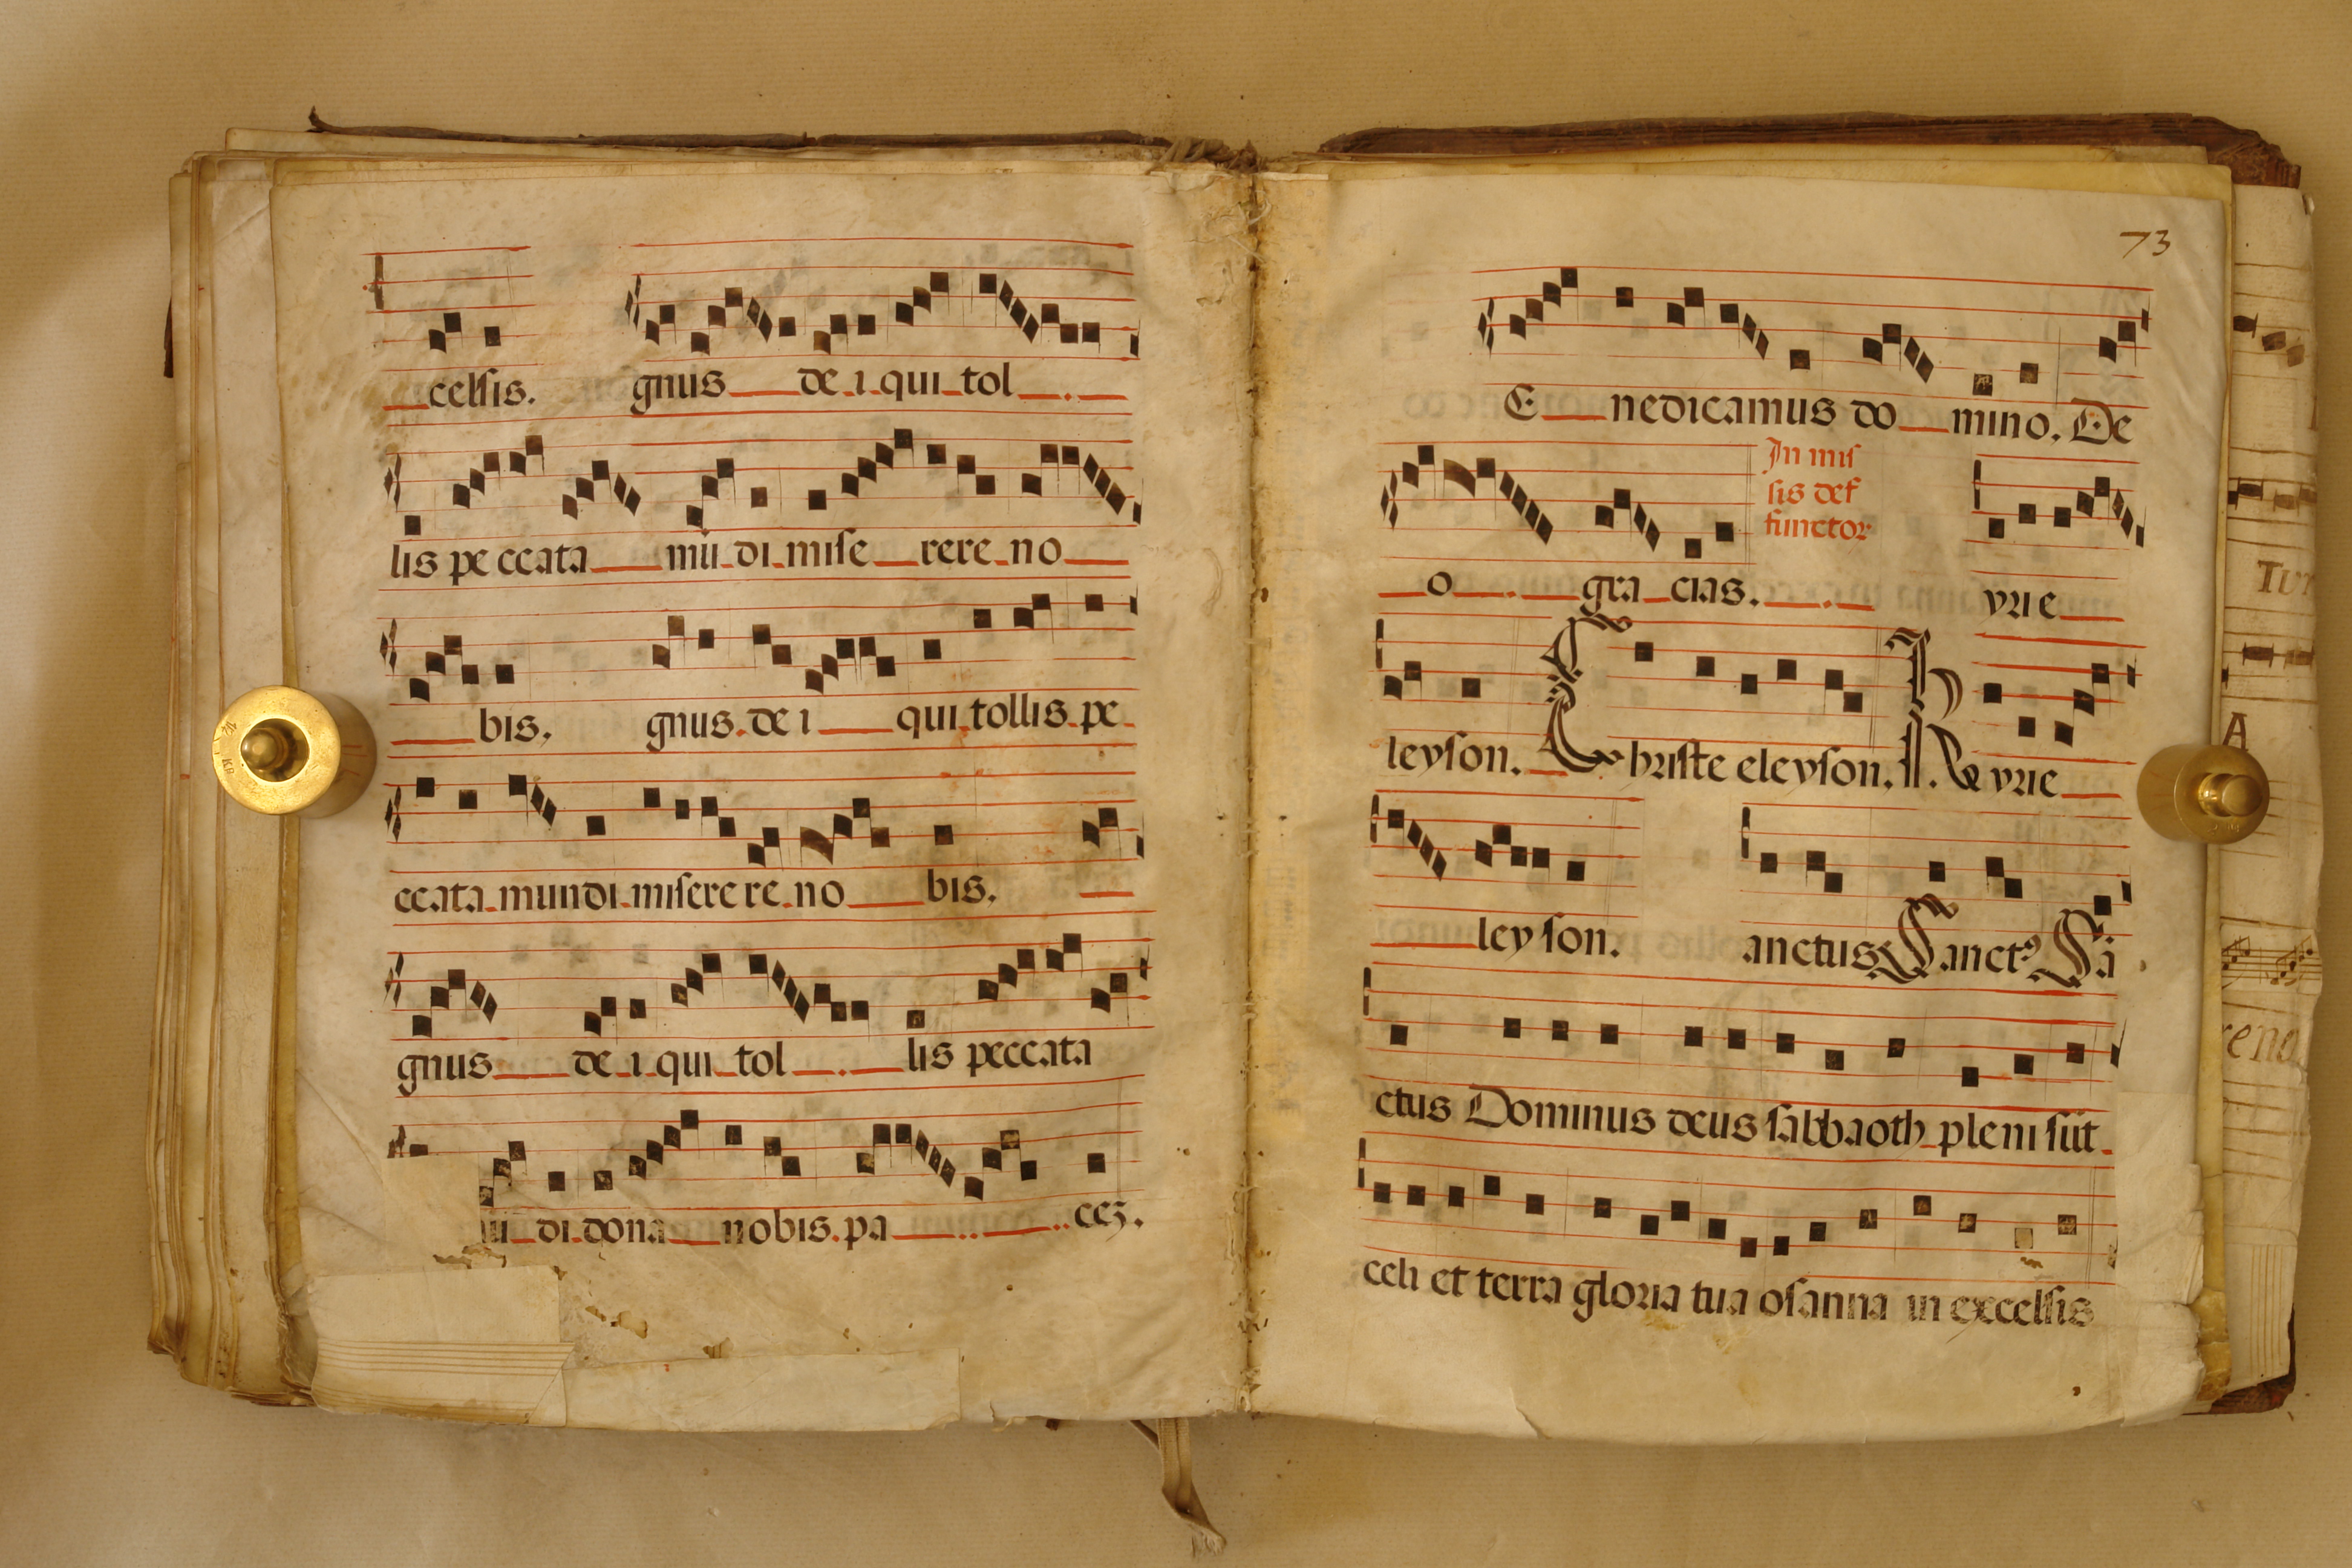 celsis. gnus de i qui tol
lis pe ccata mũ di mise rere no
bis. gnus de i qui tollis pe
ccata mundi misere re no bis.
gnus de i qui tol lis peccata
di dona nobis pa ceʒ.
73
E nedicamus do mino. De
In mis
sis def
functoꝝ
o gra cias. yrie
leyson. Christe eleyson. Kyrie
ley son. anctus Sanctꝰ Sã
ctus Dominus deus sabbaoth pleni sũt
celi et terra gloria tua osanna in excelsis
A